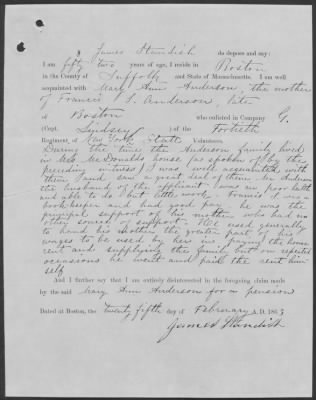 James Standish do depose and say:
I am fifty two years of age, I reside in Boston
in the County of Suffolk and State of Massachusetts. I am well
acquainted with Mary Ann Anderson, the mother
of Francis S. Anderson, late
of Boston who enlisted in Company G,
(Capt. Lindsey) of the Fortieth
Regiment of New York State Volunteers.
During the time the Anderson family lived
in Mrs. McDonalds house (as spoken of by the
preceding witness) I was well acquainted with
them and saw a great deal of them. Mr Anderson
the husband of the applicant was in poor health
and able to do but little work. Francis was a
book-keeper and had good pay. he was the
principal support of his mother who had no
other source of support. He used generally
to hand his mother the greater part of his
wages to be used by her in paying the house
rent and supplying the family but on repeated
occasions he went and paid the rent him
self
And I further say that I am entirely disinterested in the foregoing claim made
by the said Mary Ann Anderson for a pension
Dated at Boston, the twenty fifth day of February A.D. 1863
James Standish